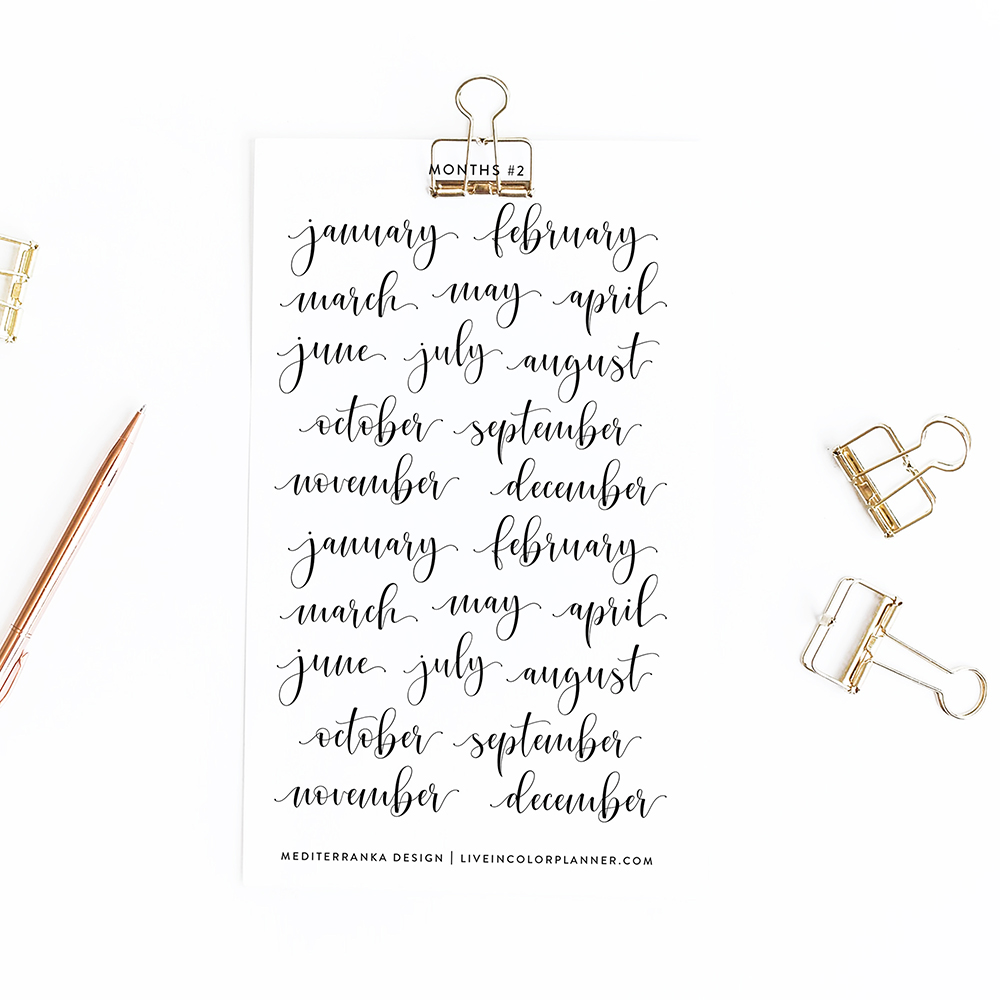 MONTHS #2
january february
march may april
june july august
october september
november december
january february
march may april
june july august
october september
november december
MEDITERRANKA DESIGN | LIVEINCOLORPLANNER.COM